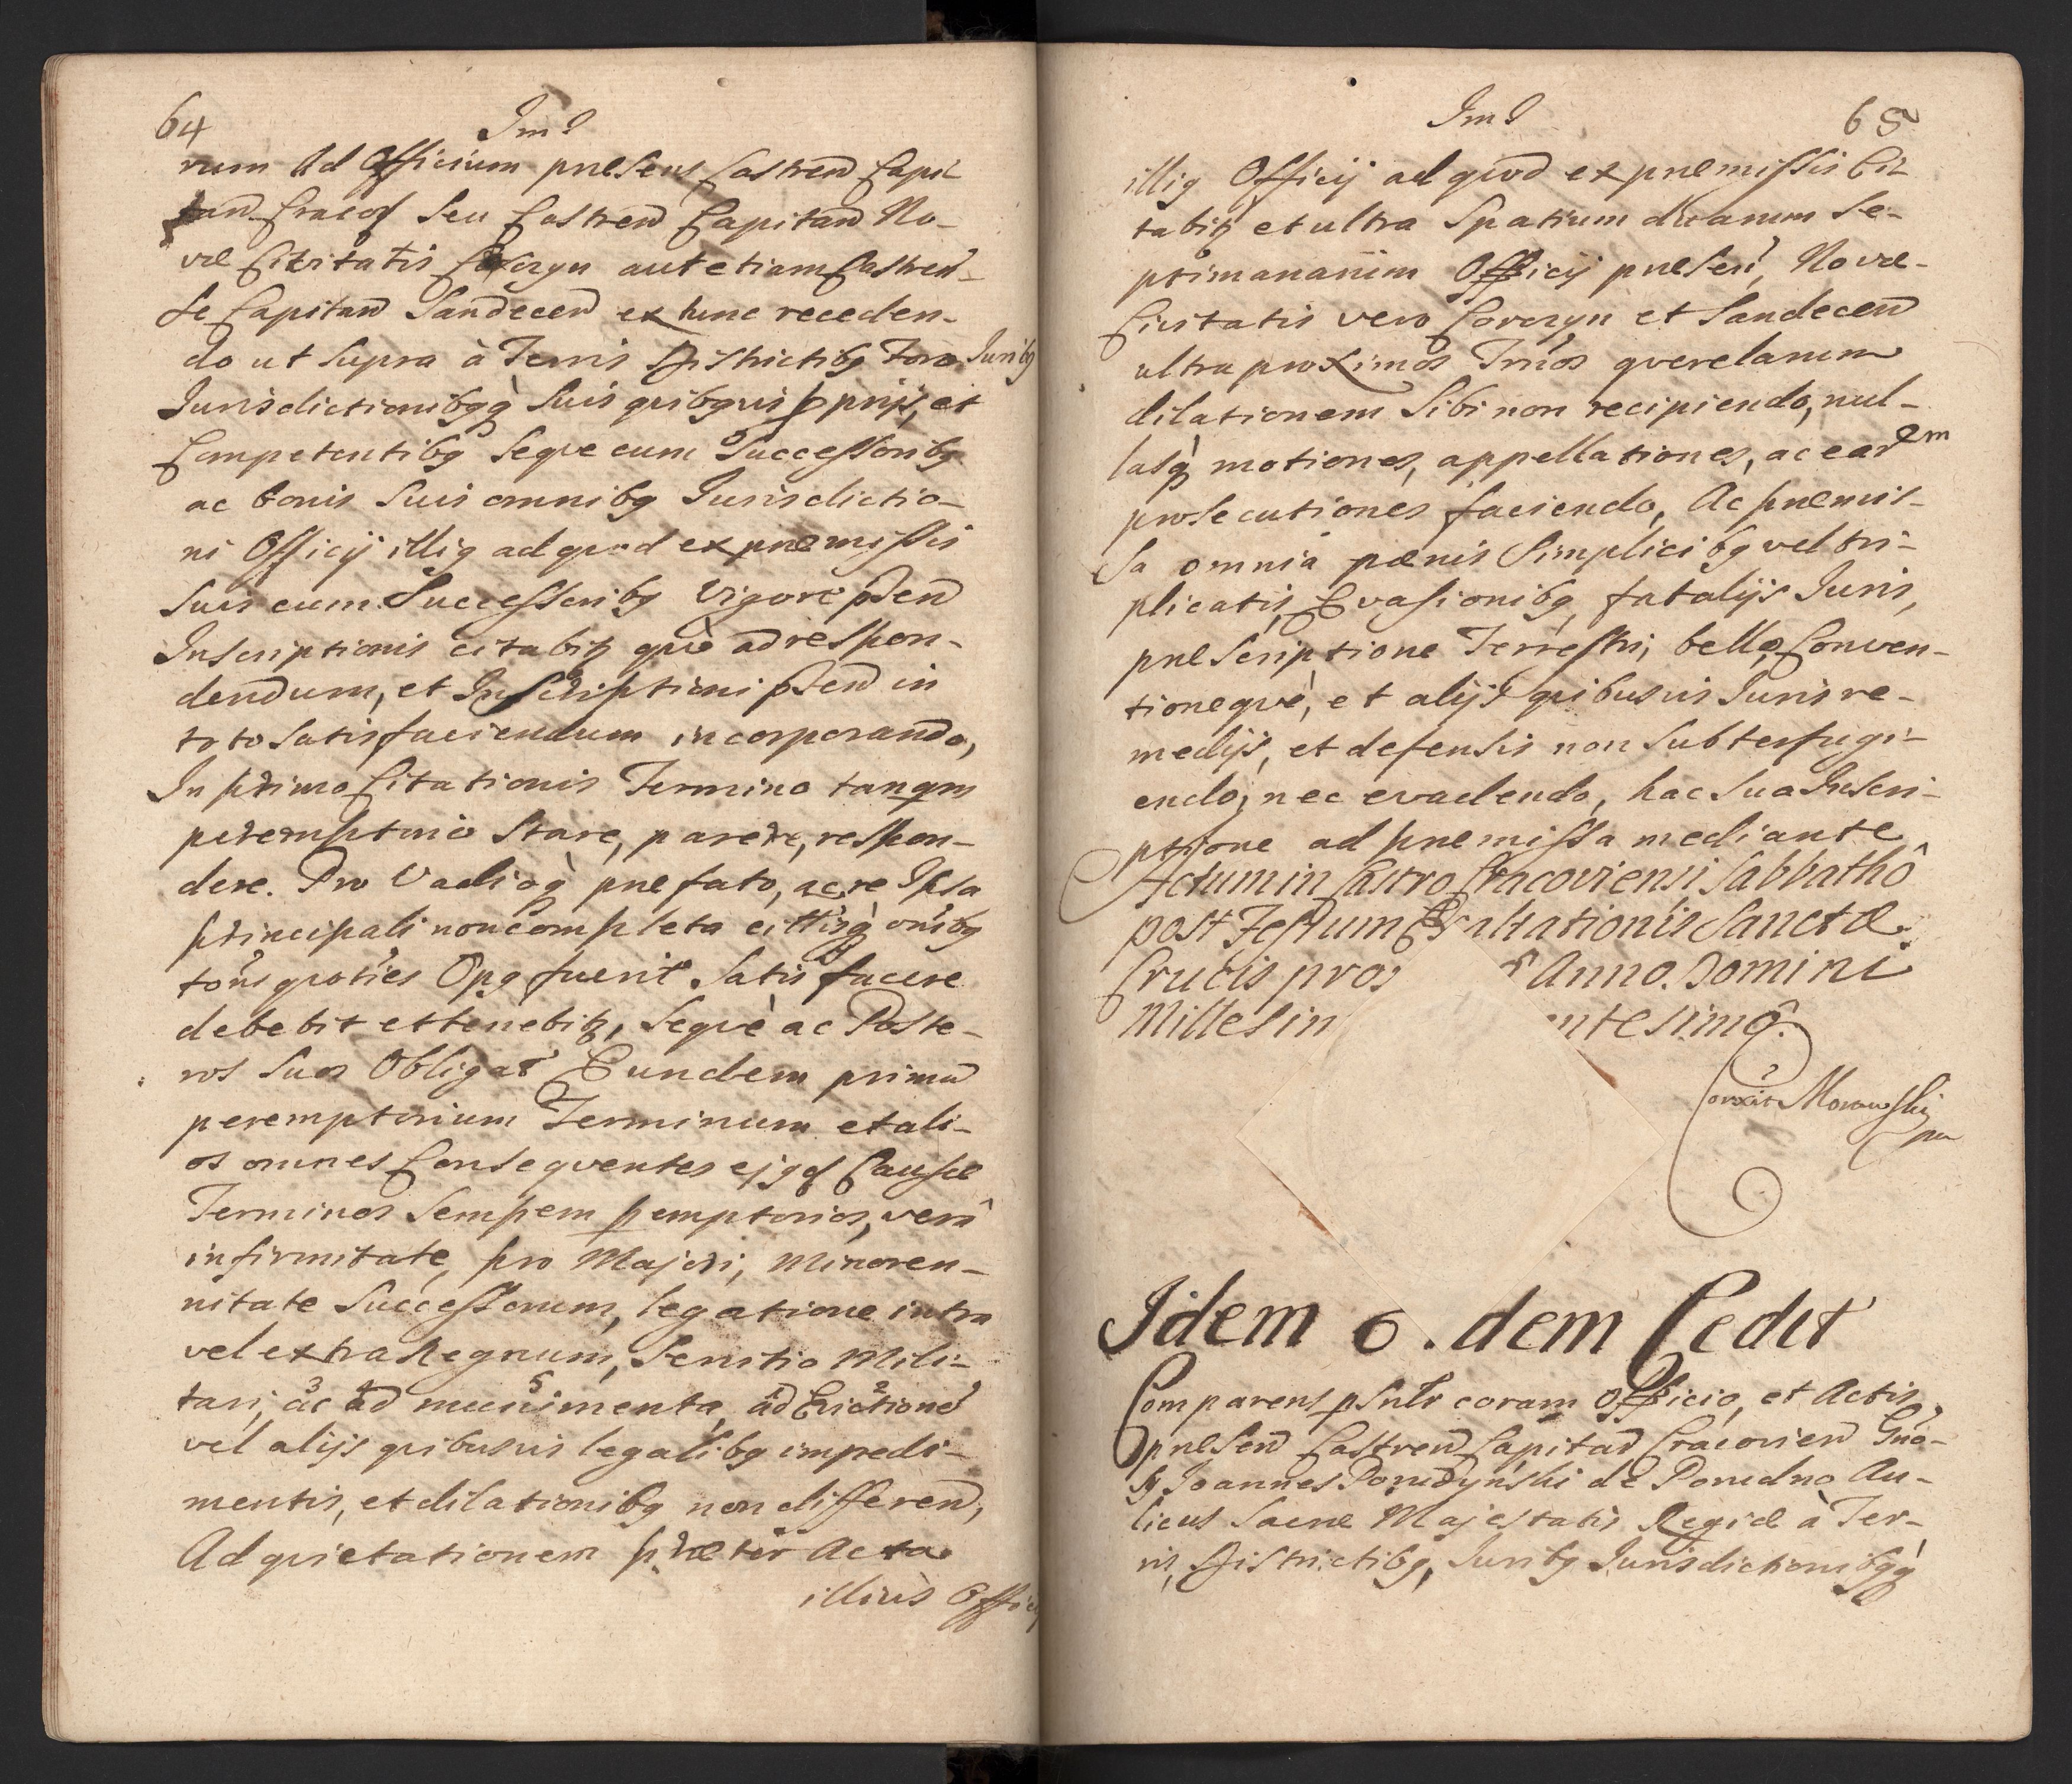 64
rum Ad Officium præsens Castren Capi-
tan Cracov Seu Castren Capitan No-
væ Civitatis Corczyn aut etiam Castren-
se Capitan Sandecen ex tunc receden-
do ut supra à Terris Districtibg Foro Juribg
Jurisdictionibgq̀ Suis qvibqvis pprijs, et
Competentibg Seqve cum Successoribg
ac bonis Suis omnibg Jurisdictio-
ni Officij illig ad qvod ex præmissis
Suis cum Successoribg Vigore pñten
Inscriptionis citabit qvè ad respon-
dendum, et Inscriptioni pñten in
toto Satisfaciendum incorporando,
In primo Citationis Termino tanqm
peremptorio Stare, parere, respon-
dere. Pro Vadioq̀ præfato, ac re Ipsa
principali non completa
toñs qvoties Opg fuerit Satisfacere
debebit et tenebit, Seqvè ac Poste-
ros Suos Obligat Eundem primũ
peremptorium Terminum et ali-
os omnes Conseqventes ejgd Causæ
Terminos Semper pemptorios, verâ
infirmitate, pro Majori, Minoren-
nitate Successorum, legatione intra
vel extra Regnum, Servitio Mili-
tari, ac ad munimenta, ad Evictiones
vel alijs qvibusvis legalibg impedi-
mentis, et dilationibg non differen,
Ad qvietationem præter Acta
illius Officij
65
illig Officij ad qvod ex præmissis Ci-
tabit et ultra Spatium duarum Se-
ptimanarum Officij præsen, Novæ-
Civitatis vero Corczyn et Sandecen
ultra proximos Trños qverelarum
dilationem Sibi non recipiendo, nul-
lasq̀ motiones, appellationes, ac earem
prosecutiones faciendo, Ac præmis-
sa omnia pænis Simplicibg vel tri-
plicatis, Evasionibg, fatalijs Juris,
præscriptione Terrestri, bello, Conven-
tioneqvè, et alijs qvibusvis Juris re-
medijs, et defensis non Subterfugi-
endo, nec evadendo, hac Sua Inscri-
ptione ad præmissa mediante
Actum in Castro Cracoviensi Sabbathô
post Festum Exaltationis Sanctæ
Crucis prox Anno Domini
Millesim entesimô.
Correxit Morawski
mp
Idem e.dem Cedit
Comparens psnlr coram Officio, et Actis
præsen Castren Capitan Cracovien Gno-
sg Joannes Porudzynski de Porudno Au-
licus Sacræ Majestatis Regiæ à Ter-
ris, Districtibg, Juribg Jurisdictionibgq̀